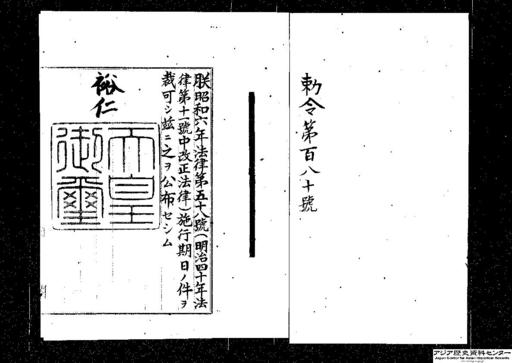 勅令第百八十號
朕昭和六年法律第五十八號(明治四十年法
律第十一號中改正法律)施行期日ノ件ヲ
裁可シ茲ニ之ヲ公布セシム
裕仁
天皇
御璽
アジア歴史資料センター
Japan Center for Asian Historical Records